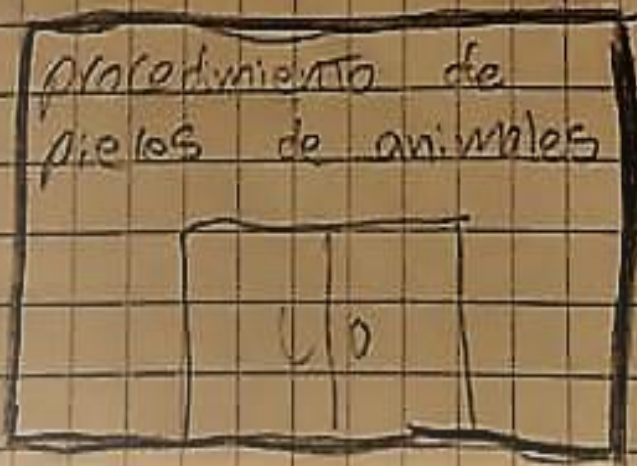 procedimiento de
pieles de animales